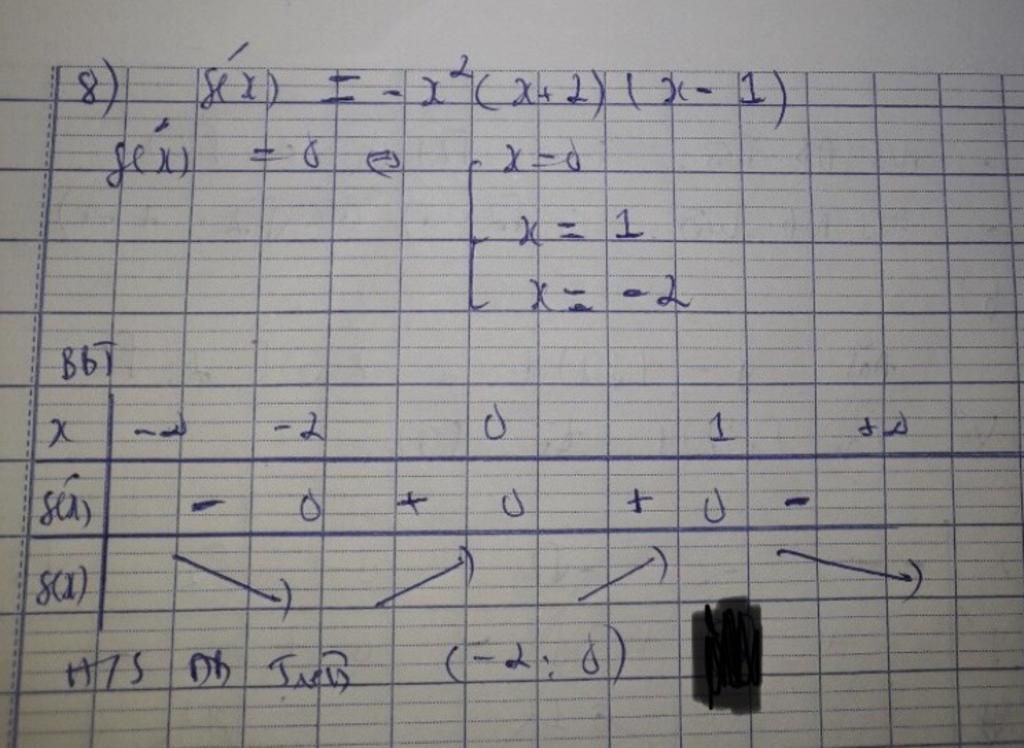 8) f'(x) = - x²(x+2)(x-1)
f'(x) = 0 ⇔ [ x=0
x = 1
x = -2
BbT
x -∞ -2 0 1 +∞
f'(x) - 0 + 0 + 0 -
f(x) ↘ ↗ ↗ ↘
(-2; 0)